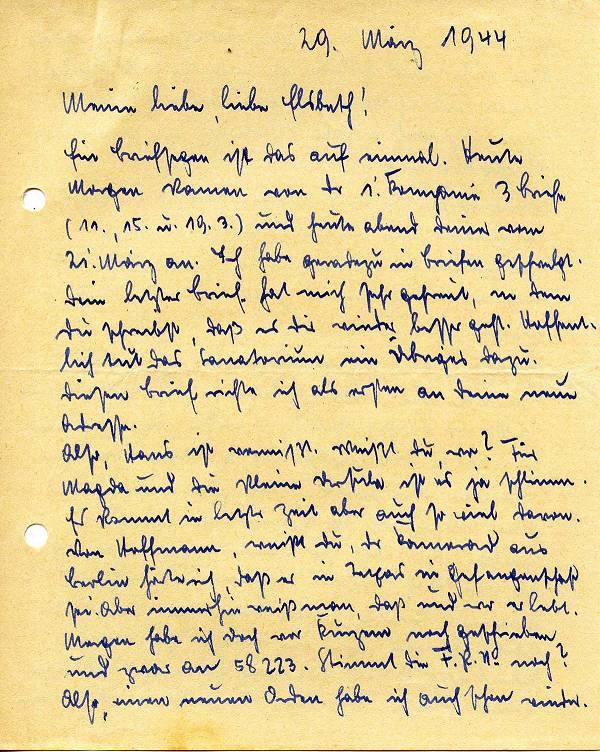 29. März 1944
Meine liebe, liebe Elsbeth!
Ein Briefsegen ist das auf einmal. Heute
Morgen kamen von der 1. Kompanie 3 Briefe
(11., 15. u. 19. 3.) und heute abend Deiner vom
21. März an. Ich habe geradezu in Briefen geschwelgt.
Dein letzter Brief hat mich sehr gefreut, in dem
Du schreibst, daß es Dir wieder besser geht. Hoffent-
lich tut das Sanatorium ein Übriges dazu.
Diesen Brief richte ich als ersten an Deine neue
Adresse.
Also, Hans ist vermißt. Weißt Du, wo? Für
Magda und die kleine Ursula ist es ja schlimm.
Es kommt in letzter Zeit aber auch so viel davon.
Von Hoffmann, weißt Du, der Kamerad aus
Berlin hörte ich, daß er in Texas in Gefangenschaft
sei. Aber immerhin weiß man, daß und wo er lebt.
habe ich doch vor Kurzem noch geschrieben
und zwar an 58223. Stimmt die F.P.No noch?
Also, einen neuen Orden habe ich auch schon wieder.